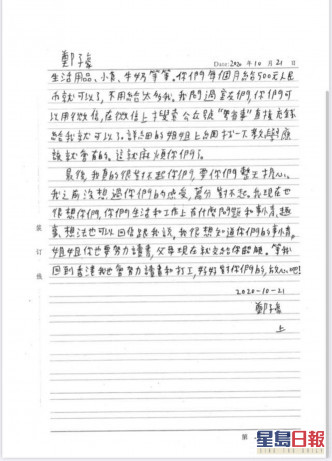 鄭子豪
Date: 2020 年 10 月 21 日
生活用品、小青、牛奶等等。你們每個月給500元人民
币就可以了，不用給太多我。我問過管友們，你們可
以用微信，在微信上
給我就可以了。詳細的姐姐上網打一下
該就會有的。这就麻煩你們了。
最後，我真的很對不起你們，要你們整天担心。
我之前沒想過你們的感受，萬分對不起。我現在也
很想你們，你們生活和工作上有什麼問題和事情，趣
事，想法也可以回信跟我說，我很想知道你們的事情。
姐姐你也要努力讀書，父母現在就交給你照顧。等我
回到香港我也會努力讀書和打工，好好對你們的，放心吧！
2020-10-21
鄭子豪
上
装订线
第
星島日報
SING TAO DAILY